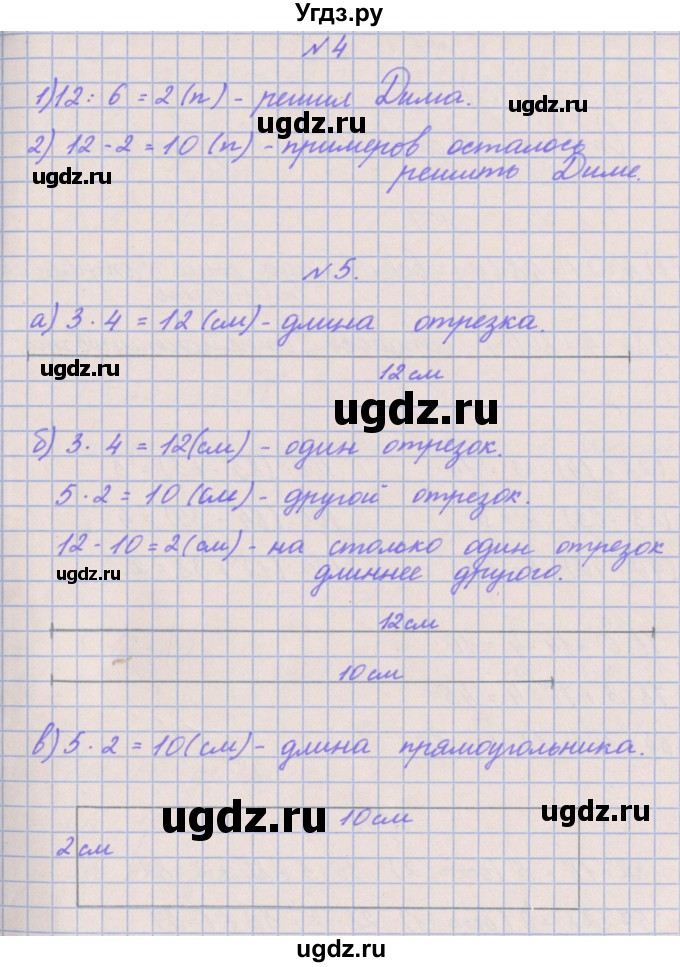 Угдз.ру
№4
1) 12 : 6 = 2 (п) - решил Дима.
ugdz.ru
2) 12 - 2 = 10 (п) - примеров осталось
ugdz.ru
решить Диме.
№5.
а) 3 · 4 = 12 (см) - длина отрезка.
ugdz.ru
12 см
ugdz.ru
б) 3 · 4 = 12 (см) - один отрезок.
5 · 2 = 10 (см) - другой отрезок.
12 - 10 = 2 (см) - на столько один отрезок
ugdz.ru
длиннее другого.
12 см
10 см
в) 5 · 2 = 10 (см) - длина прямоугольника.
ugdz.ru
10 см
ugdz.ru
2 см
ugdz.ru